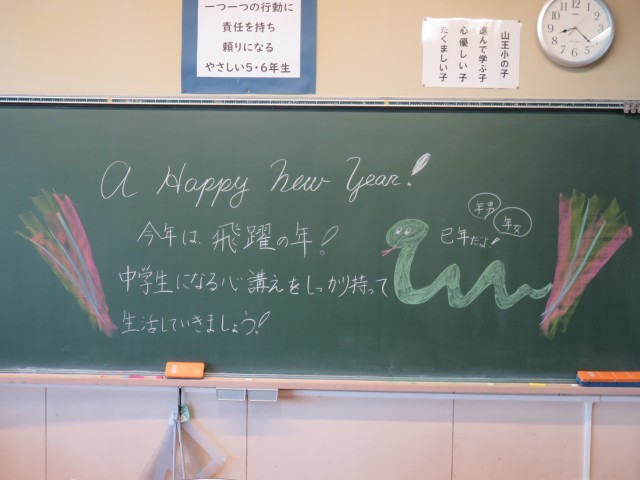 一つ一つの行動に
責任を持ち
頼りになる
やさしい5・6年生
山王小の子
進んで学ぶ子
心優しい子
たくましい子
A Happy New Year!
今年は、飛躍の年!
中学生になる心講えをしっかり持って
生活していきましょう!
巳年だよ!
年男
年女